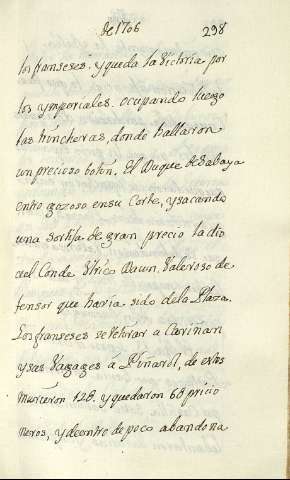 de 1706 298
los franseses. y queda la victoria por
los ymperiales. ocupando luego
las trincheras, donde hallaron
un precioso botin, El Duque de Sabaya
entro gozoso en su Corte, y sacando
una sortija de gran precio la dio
al Conde Ulrico Daun, Valeroso de
fensor que havia sido dela Plaza.
Los franseses se retirar a Cariñan
y sus Vagages á Pinarol, de ellos
murieron 128. y quedaron 68 pricio
neros, y dentro de poco abandona